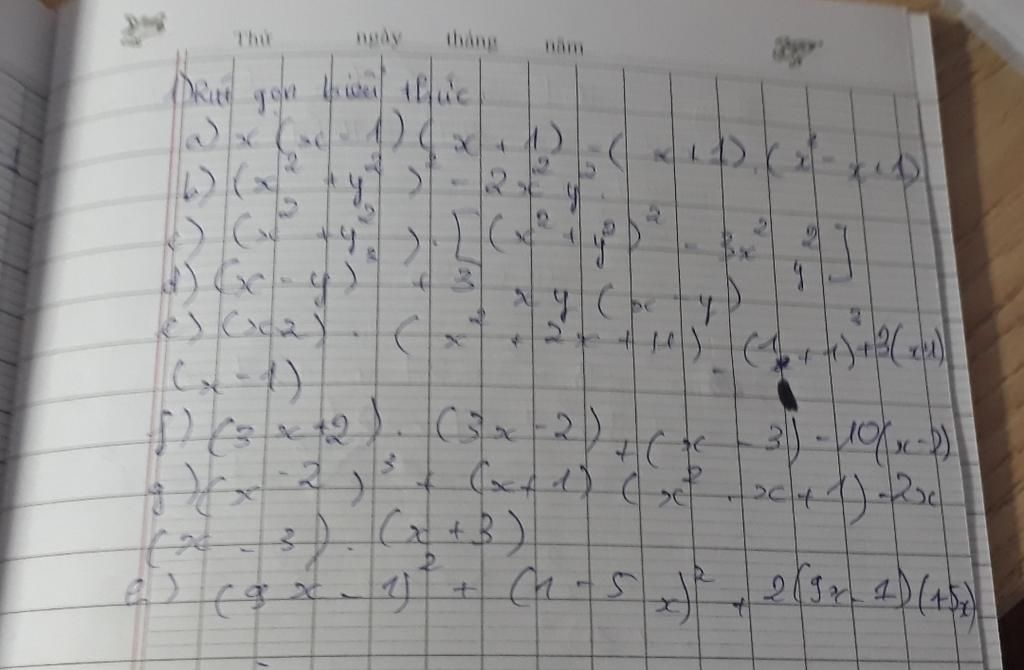 Thứ ngày tháng năm
1) Rút gọn biểu thức
a) x(x-1)(x+1)-(x+1).(x²-x+1)
b) (x²+y²)²-2x²y².
c) (x²+y²).[(x²+y²)²-3x²y²]
d) (x-y)³+3xy(x-y)
e) (x2).(x²+2x+4)-(x+1)³+3(x+1)
(x-1)
f) (3x+2).(3x-2)+(x-3)-10(x-2)
g) (x-2)³+(x+1)(x²-x+1)-2x
(x-3).(x+3)
e) (9x-1)²+(1-5x)²+2(9x-1)(+5x)